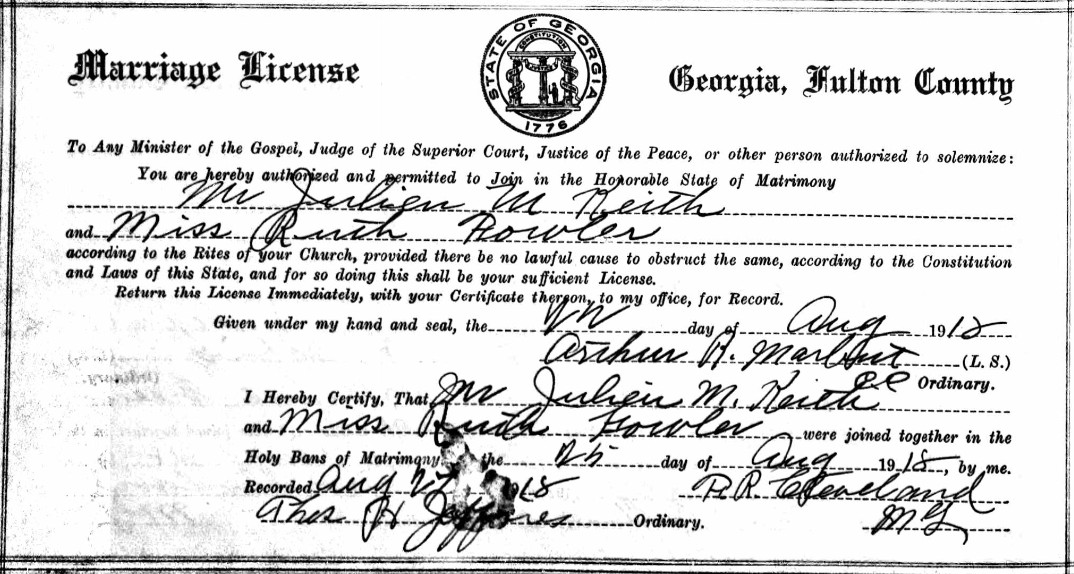 Marriage License
STATE OF GEORGIA
CONSTITUTION
1776
Georgia, Fulton County
To Any Minister of the Gospel, Judge of the Superior Court, Justice of the Peace, or other person authorized to solemnize:
You are hereby authorized and permitted to Join in the Honorable State of Matrimony
Mr Julien M Keith
and Miss Ruth Fowler
according to the Rites of your Church, provided there be no lawful cause to obstruct the same, according to the Constitution
and Laws of this State, and for so doing this shall be your sufficient License.
Return this License Immediately, with your Certificate thereon, to my office, for Record.
Given under my hand and seal, the day of Aug 1918
Arthur R. Marbut (L. S.)
Ordinary.
I Hereby Certify, That Mr Julien M. Keith
and Miss Ruth Fowler were joined together in the
Holy Bans of Matrimony the 25 day of Aug 1918, by me.
Recorded Aug 27 1918 P. R. Cleveland
Thos H Jeffries Ordinary. M G